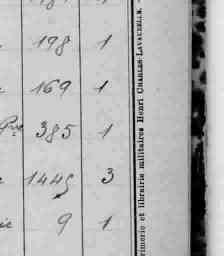 198 1
169 1
385 1
1445 3
9 1
rimerie et librairie militaires Henri CHARLES-LAVAUZELLE.